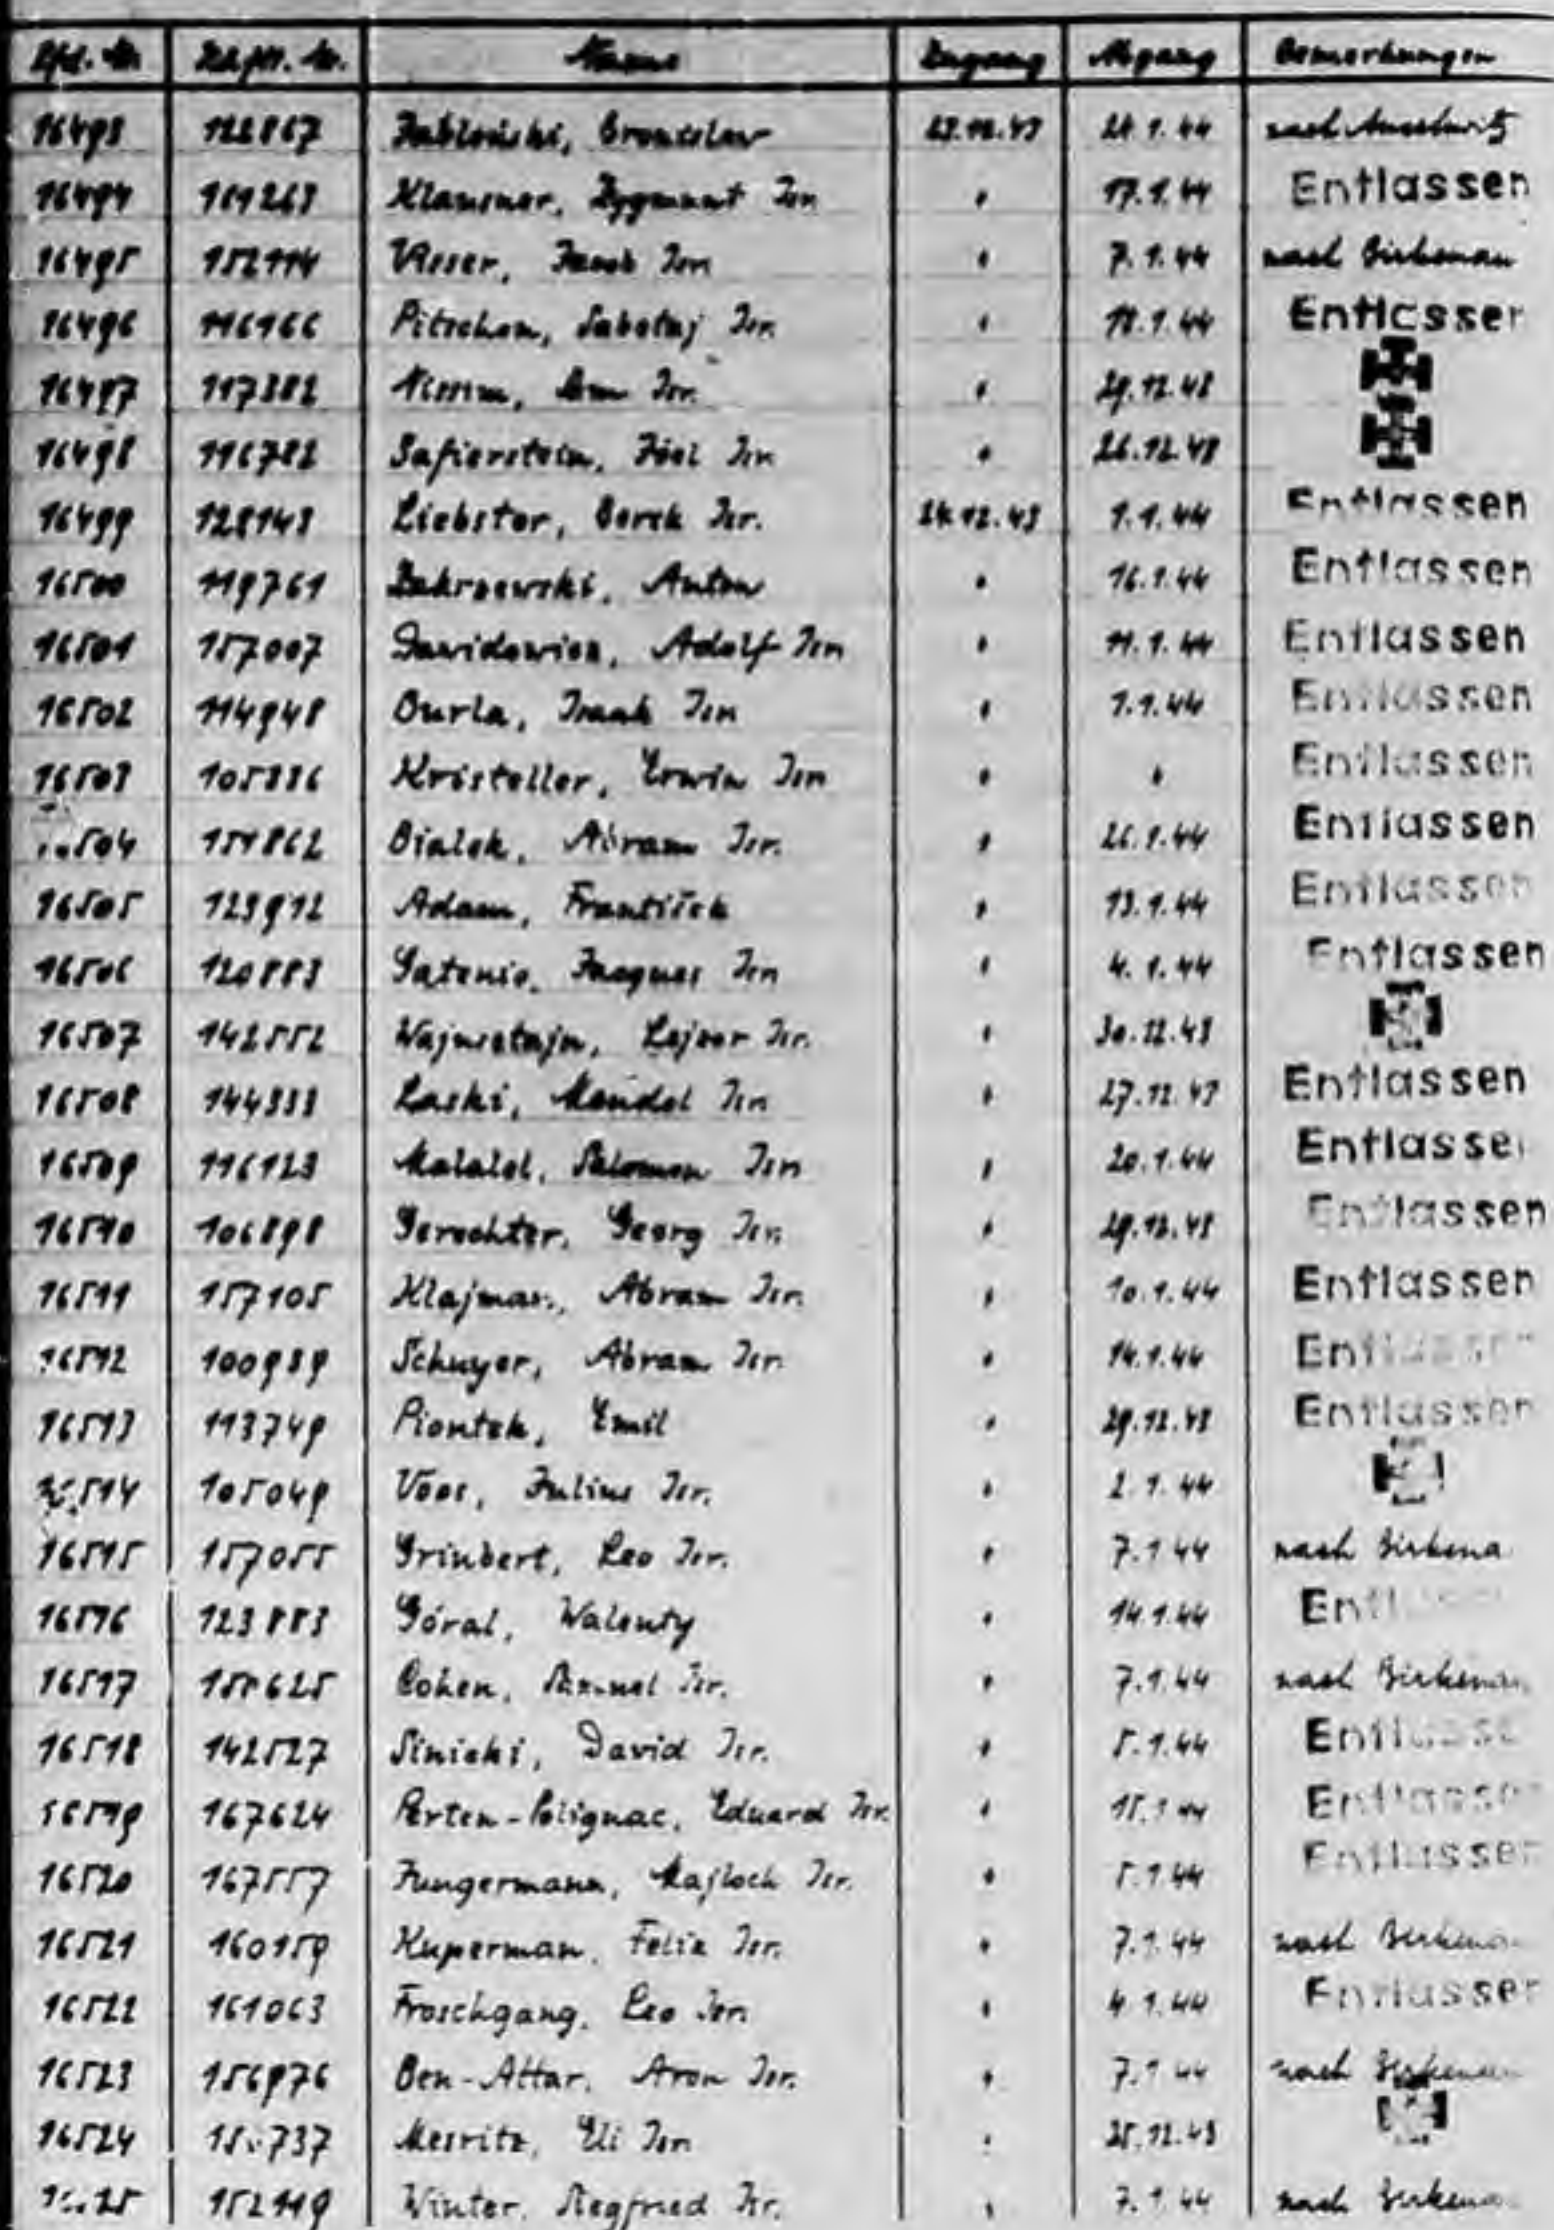 Lfd. Nr. Häftl. Nr. Name Zugang Abgang Bemerkungen
16493 122867 Jabloński, Bronislaw 23.12.43 24.1.44 nach Auschwitz
16494 Klausner, Zygmunt Isr. " 17.1.44 Entlassen
16495 152114 Isr. " 7.1.44 nach Birkenau
16496 116166 Pitschon, Sabetaj Isr. " 18.1.44 Entlassen
16497 117382 Isr. " 29.12.43
16498 116782 Safierstein, Isr. " 26.12.43
16499 128143 Liebster, Berek Isr. 24.12.43 1.1.44 Entlassen
16500 119761 Zakrzewski, Anton " 16.1.44 Entlassen
16501 157007 Dawidowicz, Adolf Isr. " 11.1.44 Entlassen
16502 114948 Burla, Isaak Isr. " 1.1.44 Entlassen
16503 105886 Kristeller, Erwin Isr. " " Entlassen
16504 151862 Bialek, Abram Isr. " 26.1.44 Entlassen
16505 123912 Adam, František " 13.1.44 Entlassen
16506 120883 Gatenio, Jacques Isr. " 4.1.44 Entlassen
16507 142552 Wajnsztajn, Lejzor Isr. " 30.12.43
16508 144333 Laski, Mendel Isr. " 27.12.43 Entlassen
16509 116123 Malalel, Salomon Isr. " 20.1.44 Entlassen
16510 106898 Gerechter, Georg Isr. " 29.12.43 Entlassen
16511 157105 Klajman, Abram Isr. " 10.1.44 Entlassen
16512 100939 Schuyer, Abram Isr. " 14.1.44 Entlassen
16513 113749 Piontek, Emil " 29.12.43 Entlassen
16514 105049 Voos, Julius Isr. " 2.1.44
16515 157055 Grinbert, Leo Isr. " 7.1.44 nach Birkena
16516 123883 Góral, Walenty " 14.1.44 Entl
16517 Cohen, Samuel Isr. " 7.1.44 nach Birkenau
16518 142527 Sinicki, David Isr. " 5.1.44 Entlasse
16519 167624 Perten-Polignac, Eduard Isr. " 15.1.44 Entlassen
16520 167557 Jungermann, Majloch Isr. " 5.1.44 Entlassen
16521 160159 Kuperman, Felix Isr. " 7.1.44 nach Birkenau
16522 161063 Froschgang, Leo Isr. " 4.1.44 Entlassen
16523 156976 Ben-Attar, Aron Isr. " 7.1.44 nach Birkenau
16524 Mesritz, Eli Isr. " 25.12.43
16525 152119 Winter, Siegfried Isr. " 7.1.44 nach Birkenau